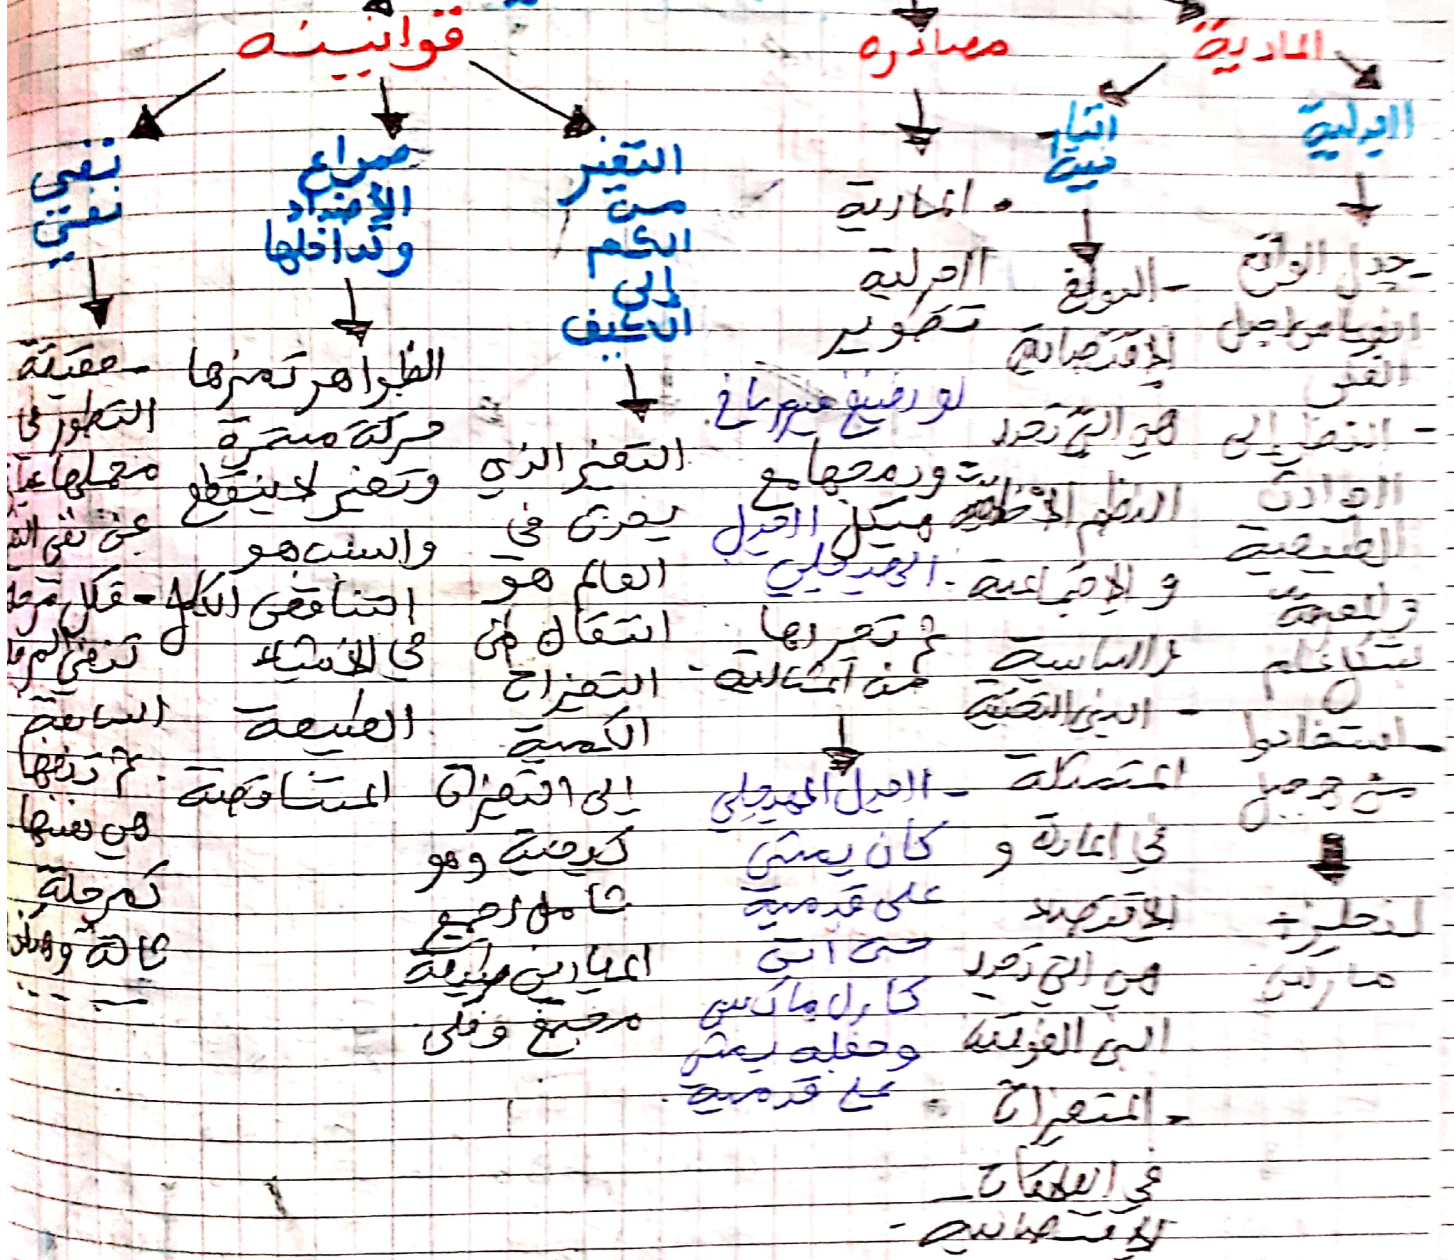 المادية
الجدلية
- جدل الواقع
- انتضر إلى
الحوادث
الطبيعية
- استخدمها
من هيجل
ماركس
التاريخية
- الموقع
الاقتصادية
هي التي تحدد
النظم الأخلاقية
والاجتماعية
والسياسية
- البنى التحتية
المتمثلة
في المادة و
الاقتصاد
هي التي تحدد
البنى الفوقية
- المتغيرات
في العلاقات
الاقتصادية -
مصادره
• المادية
الجدلية
تطوير
لودفيغ فيورباخ
ودمجها مع
هيكل الجدل
الهيجلي.
ثم تحريرها
من المثالية.
- الجدل الهيجلي
كان يمشي
على قدمية
حتى اتى
كارل ماركس
وجعله يمشي
على قدمية.
قوانينه
التغير
من
الكم
إلى
الكيف
التغير الذي
يجري في
العالم هو
انتقال من
التغيرات
الكمية
إلى التغيرات
كيفية وهو
شامل لجميع
الميادين طبيعة
مجتمع وفكر
صراع
الأضداد
وتداخلها
الظواهر تميزها
حركة مستمرة
وتغير لا ينقطع
والسبب هو
التناقض
في الأشياء
الطبيعة
المتناقضة
نفي
نفي
- حقيقة
التطور في
مجملها
عن نفي
- فكل
تنفي
السابقة
ثم تنفيها
هي نفسها
كمرحلة
ثالثة